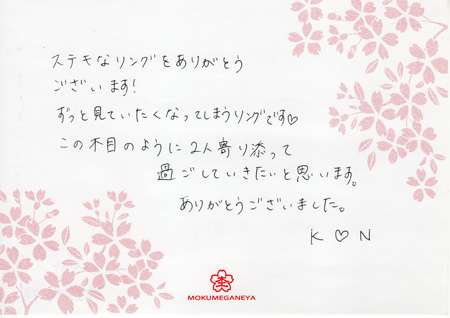 ステキなリングをありがとう
ございます!
ずっと見ていたくなってしまうリングです♡
この木目のように2人寄り添って
過ごしていきたいと思います。
ありがとうございました。
K ♡ N
MOKUMEGANEYA